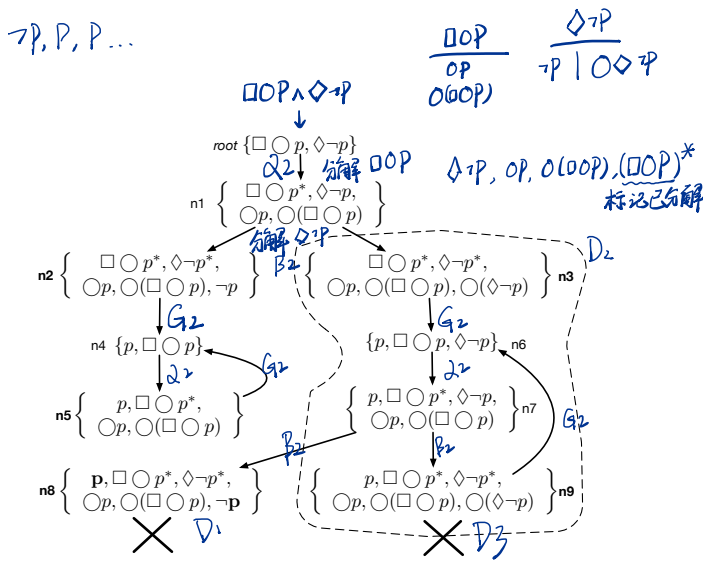 ¬P, P, P ...
□○P
○P
○(□○P)
◇¬P
¬P | ○◇¬P
□○P∧◇¬P
root {□ ○ p, ◇¬p}
α2 分解 □○P
◇¬P, ○P, ○(□○P), (□○P)*
标记已分解
n1 { □ ○ p*, ◇¬p,
○p, ○(□ ○ p) }
分解 ◇¬P
β2
D2
n2 { □ ○ p*, ◇¬p*,
○p, ○(□ ○ p), ¬p }
□ ○ p*, ◇¬p*,
○p, ○(□ ○ p), ○(◇¬p) } n3
G2
G2
n4 {p, □ ○ p}
{p, □ ○ p, ◇¬p} n6
α2
G2
α2
n5 { p, □ ○ p*,
○p, ○(□ ○ p) }
{ p, □ ○ p*, ◇¬p,
○p, ○(□ ○ p) } n7
G2
β2
β2
n8 { p, □ ○ p*, ◇¬p*,
○p, ○(□ ○ p), ¬p }
{ p, □ ○ p*, ◇¬p*,
○p, ○(□ ○ p), ○(◇¬p) } n9
D1
D3